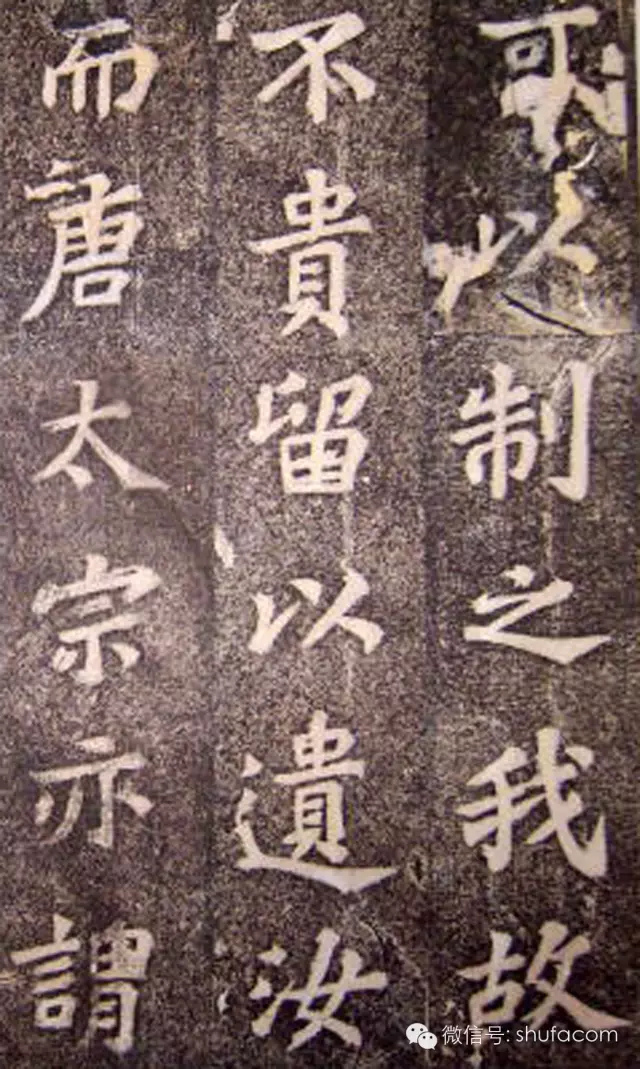 可以制之我故
不貴留以遺汝
而唐太宗亦謂
微信号: shufacom